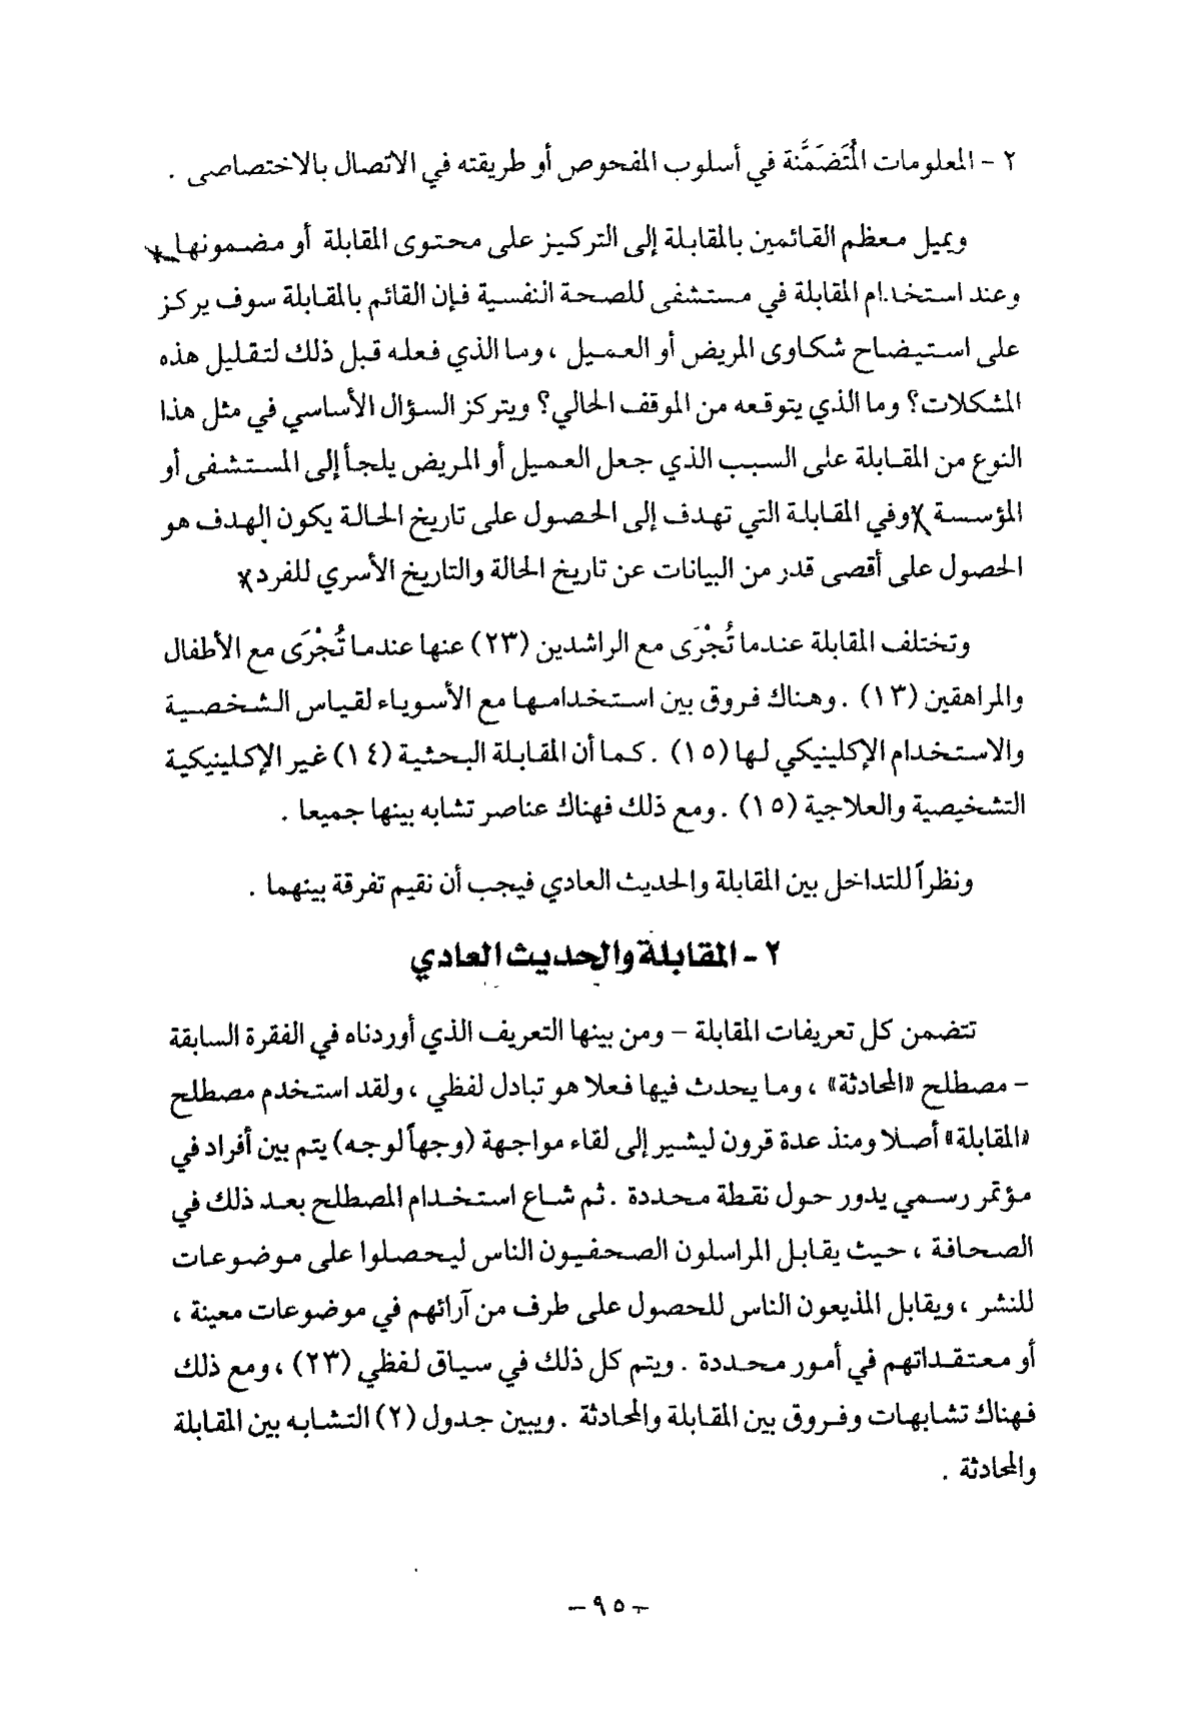 ٢ - المعلومات المُتَضَمَّنة في أسلوب المفحوص أو طريقته في الاتصال بالاختصاصى .
ويميل معظم القائمين بالمقابلة إلى التركيز على محتوى المقابلة أو مضمونها
وعند استخدام المقابلة في مستشفى للصحة النفسية فإن القائم بالمقابلة سوف يركز
على استيضاح شكاوى المريض أو العميل ، وما الذي فعله قبل ذلك لتقليل هذه
المشكلات؟ وما الذي يتوقعه من الموقف الحالي؟ ويتركز السؤال الأساسي في مثل هذا
النوع من المقابلة على السبب الذي جعل العميل أو المريض يلجأ إلى المستشفى أو
المؤسسة وفي المقابلة التي تهدف إلى الحصول على تاريخ الحالة يكون الهدف هو
الحصول على أقصى قدر من البيانات عن تاريخ الحالة والتاريخ الأسري للفرد
وتختلف المقابلة عندما تُجْرَى مع الراشدين (٢٣) عنها عندما تُجْرَى مع الأطفال
والمراهقين (١٣) . وهناك فروق بين استخدامها مع الأسوياء لقياس الشخصية
والاستخدام الإكلينيكي لها (١٥) . كما أن المقابلة البحثية (١٤) غير الإكلينيكية
التشخيصية والعلاجية (١٥) . ومع ذلك فهناك عناصر تشابه بينها جميعا .
ونظراً للتداخل بين المقابلة والحديث العادي فيجب أن نقيم تفرقة بينهما .
٢ - المقابلة والحديث العادي
تتضمن كل تعريفات المقابلة - ومن بينها التعريف الذي أوردناه في الفقرة السابقة
- مصطلح «المحادثة» ، وما يحدث فيها فعلا هو تبادل لفظي ، ولقد استخدم مصطلح
«المقابلة» أصلا ومنذ عدة قرون ليشير إلى لقاء مواجهة (وجهاً لوجه) يتم بين أفراد في
مؤتمر رسمي يدور حول نقطة محددة . ثم شاع استخدام المصطلح بعد ذلك في
الصحافة ، حيث يقابل المراسلون الصحفيون الناس ليحصلوا على موضوعات
للنشر ، ويقابل المذيعون الناس للحصول على طرف من آرائهم في موضوعات معينة ،
أو معتقداتهم في أمور محددة . ويتم كل ذلك في سياق لفظي (٢٣) ، ومع ذلك
فهناك تشابهات وفروق بين المقابلة والمحادثة . ويبين جدول (٢) التشابه بين المقابلة
والمحادثة .
- ٩٥ -